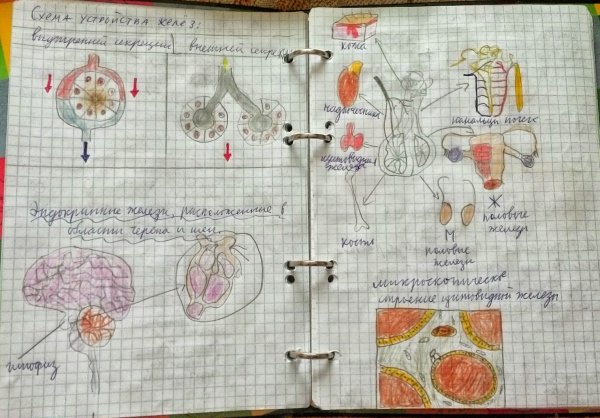 Схема устройства желез:
внутренней секреции внешней секреции
Эндокринные железы, расположенные в
области черепа и шеи.
гипофиз
кожа
надпочечник
щитовидная
железа
кости
канальцы почек
Ж
половые
железы
М
половые
железы
микроскопическое
строение щитовидной железы